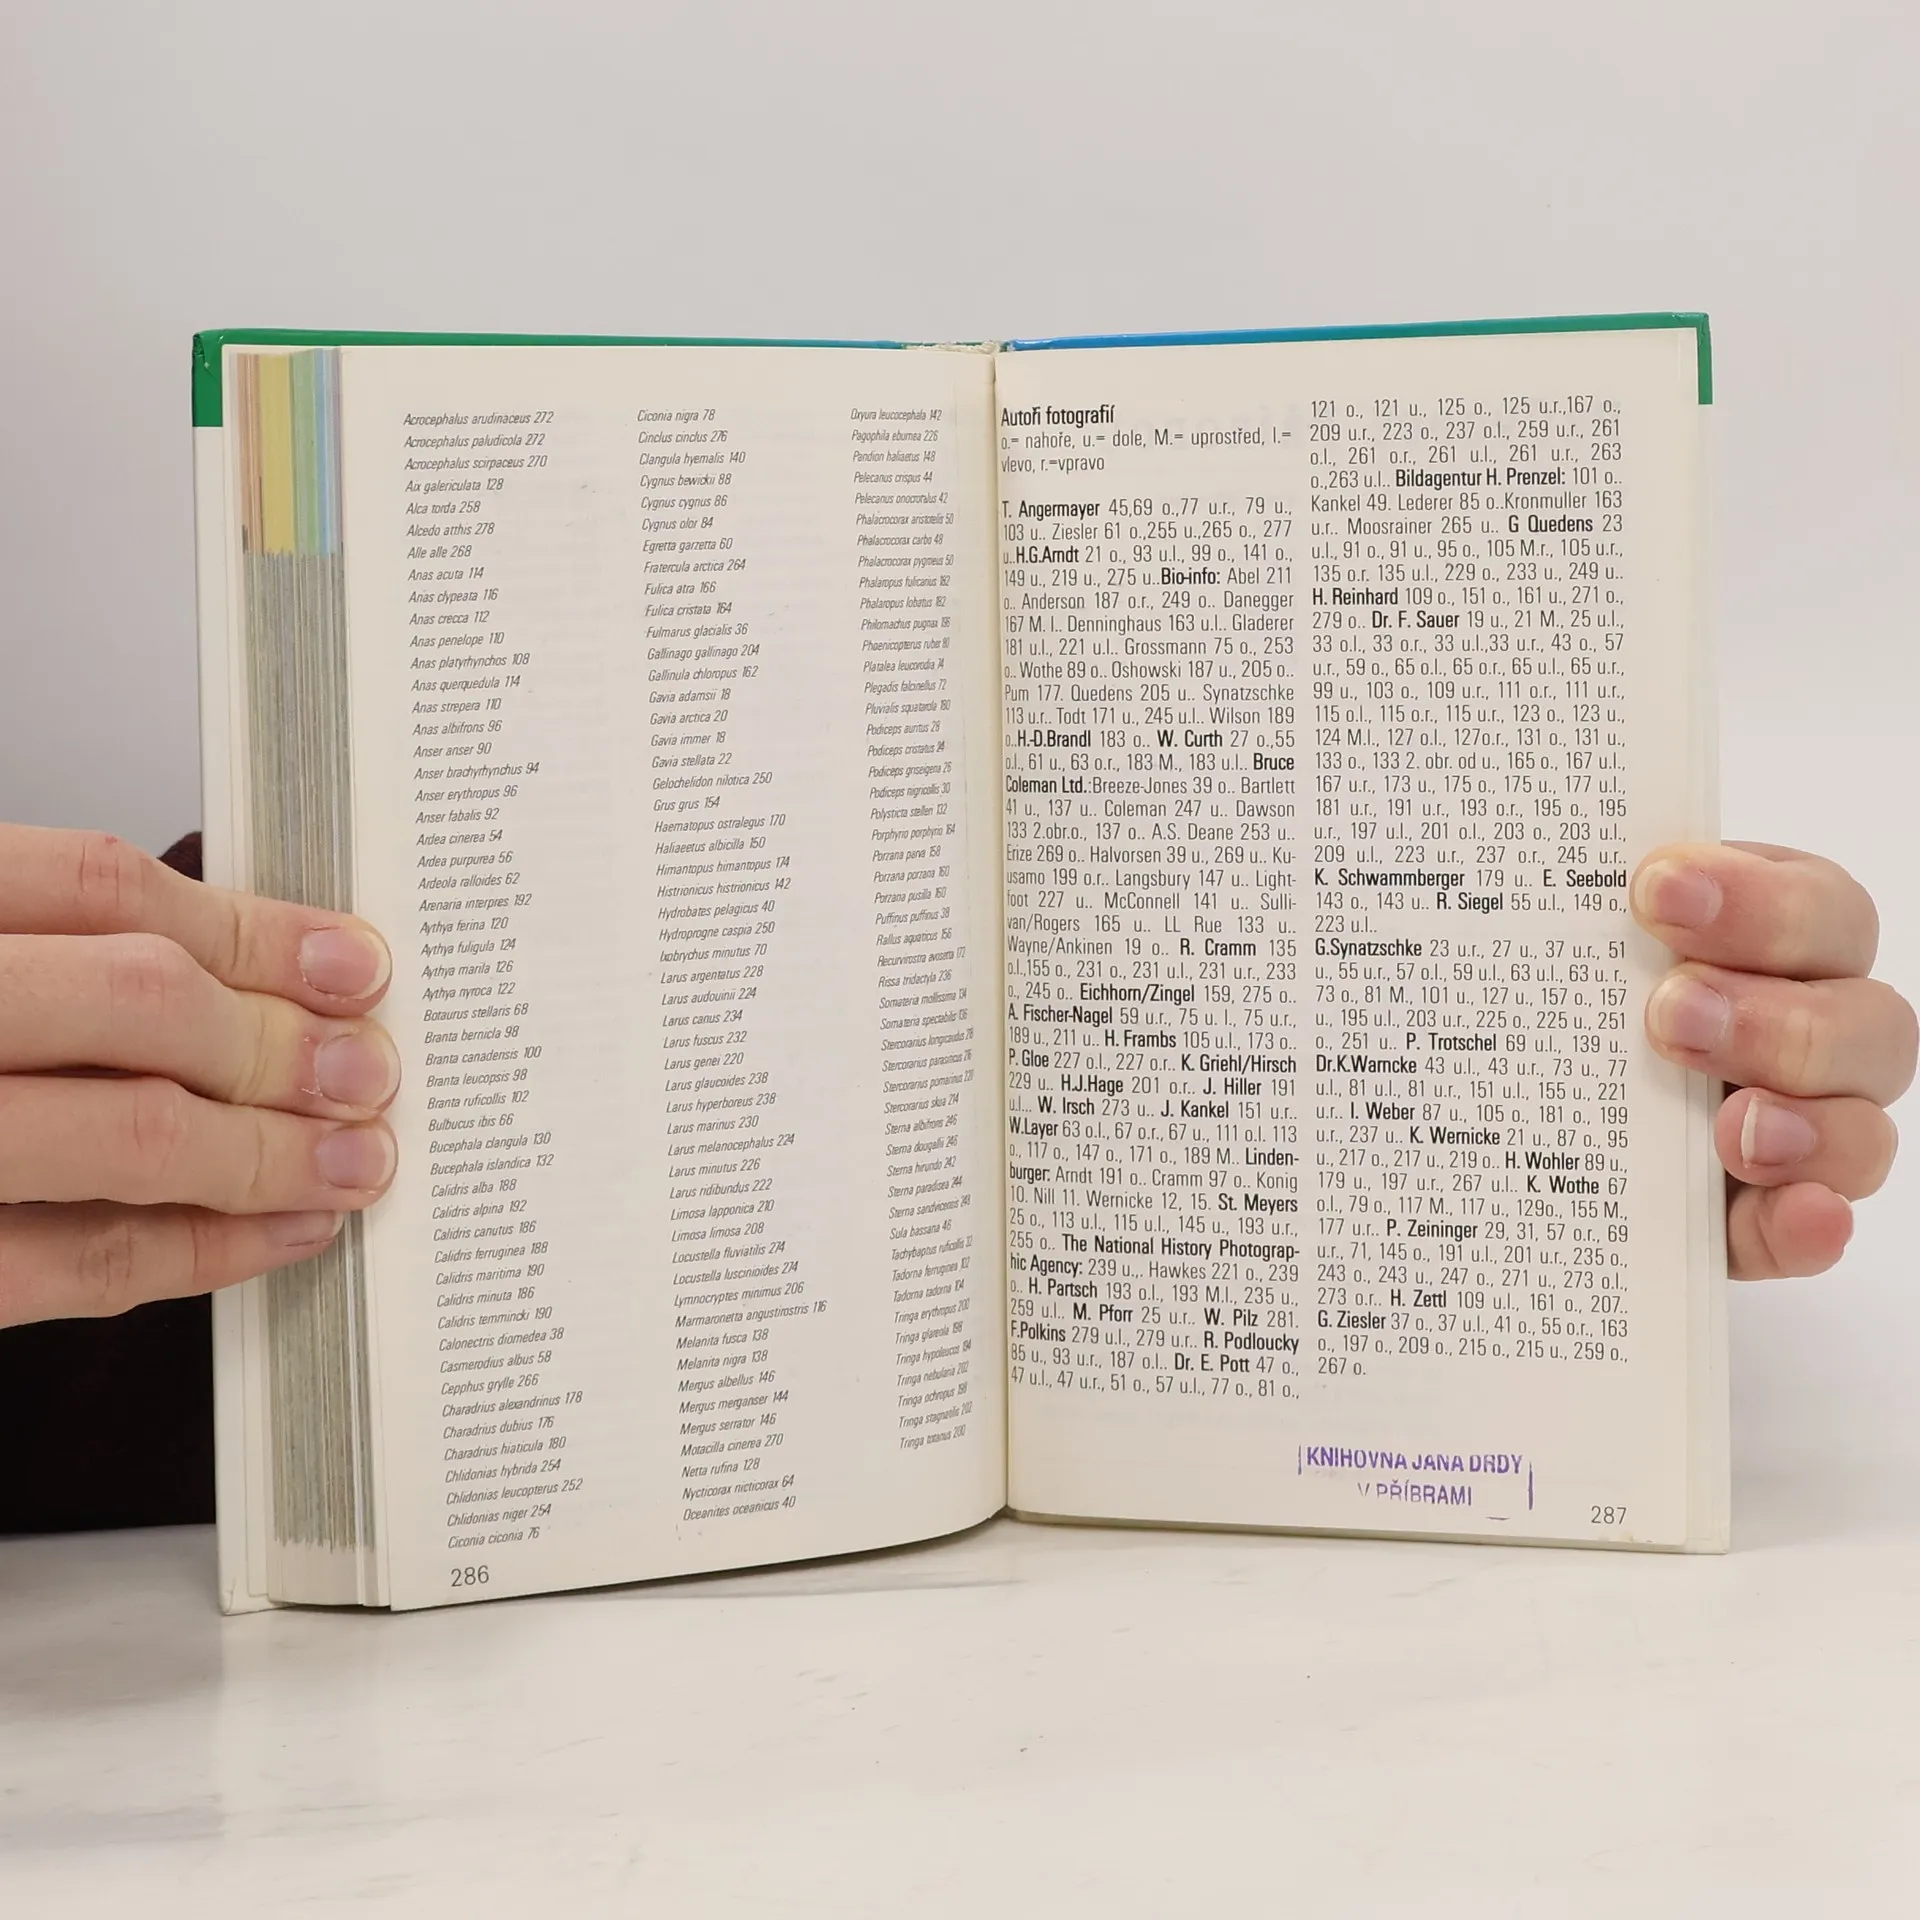 Acrocephalus arudinaceus 272
Acrocephalus paludicola 272
Acrocephalus scirpaceus 270
Aix galericulata 128
Alca torda 258
Alcedo atthis 278
Alle alle 268
Anas acuta 114
Anas clypeata 116
Anas crecca 112
Anas penelope 110
Anas platyrhynchos 108
Anas querquedula 114
Anas strepera 110
Anas albifrons 96
Anser anser 90
Anser brachyrhynchus 94
Anser erythropus 96
Anser fabalis 92
Ardea cinerea 54
Ardea purpurea 56
Ardeola ralloides 62
Arenaria interpres 192
Aythya ferina 120
Aythya fuligula 124
Aythya marila 126
Aythya nyroca 122
Botaurus stellaris 68
Branta bernicla 98
Branta canadensis 100
Branta leucopsis 98
Branta ruficollis 102
Bulbucus ibis 66
Bucephala clangula 130
Bucephala islandica 132
Calidris alba 188
Calidris alpina 192
Calidris canutus 186
Calidris ferruginea 188
Calidris maritima 190
Calidris minuta 186
Calidris temmincki 190
Calonectris diomedea 38
Casmerodius albus 58
Cepphus grylle 266
Charadrius alexandrinus 178
Charadrius dubius 176
Charadrius hiaticula 180
Chlidonias hybrida 254
Chlidonias leucopterus 252
Chlidonias niger 254
Ciconia ciconia 76
Ciconia nigra 78
Cinclus cinclus 276
Clangula hyemalis 140
Cygnus bewickii 88
Cygnus cygnus 86
Cygnus olor 84
Egretta garzetta 60
Fratercula arctica 264
Fulica atra 166
Fulica cristata 164
Fulmarus glacialis 36
Gallinago gallinago 204
Gallinula chloropus 162
Gavia adamsii 18
Gavia arctica 20
Gavia immer 18
Gavia stellata 22
Gelochelidon nilotica 250
Grus grus 154
Haematopus ostralegus 170
Haliaeetus albicilla 150
Himantopus himantopus 174
Histrionicus histrionicus 142
Hydrobates pelagicus 40
Hydroprogne caspia 250
Ixobrychus minutus 70
Larus argentatus 228
Larus audouinii 224
Larus canus 234
Larus fuscus 232
Larus genei 220
Larus glaucoides 238
Larus hyperboreus 238
Larus marinus 230
Larus melanocephalus 224
Larus minutus 226
Larus ridibundus 222
Limosa lapponica 210
Limosa limosa 208
Locustella fluviatilis 274
Locustella luscinioides 274
Lymnocryptes minimus 206
Marmaronetta angustirostris 116
Melanita fusca 138
Melanita nigra 138
Mergus albellus 146
Mergus merganser 144
Mergus serrator 146
Motacilla cinerea 270
Netta rufina 128
Nycticorax nicticorax 64
Oceanites oceanicus 40
Oxyura leucocephala 142
Pagophila eburnea 226
Pandion haliaetus 148
Pelecanus crispus 44
Pelecanus onocrotalus 42
Phalacrocorax aristotelis 50
Phalacrocorax carbo 48
Phalacrocorax pygmeus 50
Phalaropus fulicarius 182
Phalaropus lobatus 182
Philomachus pugnax 196
Phoenicopterus ruber 80
Platalea leucorodia 74
Plegadis falcinellus 72
Pluvialis squatarola 180
Podiceps auritus 28
Podiceps cristatus 24
Podiceps griseigena 26
Podiceps nigricollis 30
Polysticta stelleri 132
Porphyrio porphyrio 164
Porzana parva 158
Porzana porzana 160
Porzana pusilla 160
Puffinus puffinus 38
Rallus aquaticus 156
Recurvirostra avosetta 172
Rissa tridactyla 236
Somateria mollissima 134
Somateria spectabilis 136
Stercorarius longicaudus 216
Stercorarius parasiticus 216
Stercorarius pomarinus 220
Stercorarius skua 214
Sterna albifrons 246
Sterna dougallii 246
Sterna hirundo 242
Sterna paradisea 244
Sterna sandvicensis 248
Sula bassana 46
Tachybaptus ruficollis 32
Tadorna ferruginea 102
Tadorna tadorna 104
Tringa erythropus 200
Tringa glareola 198
Tringa hypoleucos 194
Tringa nebularia 202
Tringa ochropus 198
Tringa stagnatilis 202
Tringa totanus 200
286
Autoři fotografií
o.= nahoře, u.= dole, M.= uprostřed, l.=
vlevo, r.=vpravo
T. Angermayer 45,69 o.,77 u.r., 79 u.,
103 u.. Ziesler 61 o.,255 u.,265 o., 277
u..H.G.Arndt 21 o., 93 u.l., 99 o., 141 o.,
149 u., 219 u., 275 u..Bio-info: Abel 211
o.. Anderson 187 o.r., 249 o.. Danegger
167 M. l.. Denninghaus 163 u.l.. Gladerer
181 u.l., 221 u.l.. Grossmann 75 o., 253
o.. Wothe 89 o.. Oshowski 187 u., 205 o..
Pum 177. Quedens 205 u.. Synatzschke
113 u.r.. Todt 171 u., 245 u.l.. Wilson 189
o..H.-D.Brandl 183 o.. W. Curth 27 o.,55
o.l., 61 u., 63 o.r., 183 M., 183 u.l.. Bruce
Coleman Ltd.:Breeze-Jones 39 o.. Bartlett
41 u., 137 u.. Coleman 247 u.. Dawson
133 2.obr.o., 137 o.. A.S. Deane 253 u..
Erize 269 o.. Halvorsen 39 u., 269 u.. Ku-
usamo 199 o.r.. Langsbury 147 u.. Light-
foot 227 u.. McConnell 141 u.. Sulli-
van/Rogers 165 u.. LL Rue 133 u..
Wayne/Ankinen 19 o.. R. Cramm 135
o.l.,155 o., 231 o., 231 u.l., 231 u.r., 233
o., 245 o.. Eichhorn/Zingel 159, 275 o..
A. Fischer-Nagel 59 u.r., 75 u. l., 75 u.r.,
189 u., 211 u.. H. Frambs 105 u.l., 173 o..
P. Gloe 227 o.l., 227 o.r.. K. Griehl/Hirsch
229 u.. H.J.Hage 201 o.r.. J. Hiller 191
u.l... W. Irsch 273 u.. J. Kankel 151 u.r..
W.Layer 63 o.l., 67 o.r., 67 u., 111 o.l. 113
o., 117 o., 147 o., 171 o., 189 M.. Linden-
burger: Arndt 191 o.. Cramm 97 o.. Konig
10. Nill 11. Wernicke 12, 15. St. Meyers
25 o., 113 u.l., 115 u.l., 145 u., 193 u.r.,
255 o.. The National History Photograp-
hic Agency: 239 u.,. Hawkes 221 o., 239
o.. H. Partsch 193 o.l., 193 M.l., 235 u.,
259 u.l.. M. Pforr 25 u.r.. W. Pilz 281.
F.Polkins 279 u.l., 279 u.r.. R. Podloucky
85 u., 93 u.r., 187 o.l.. Dr. E. Pott 47 o.,
47 u.l., 47 u.r., 51 o., 57 u.l., 77 o., 81 o.,
121 o., 121 u., 125 o., 125 u.r.,167 o.,
209 u.r., 223 o., 237 o.l., 259 u.r., 261
o.l., 261 o.r., 261 u.l., 261 u.r., 263
o.,263 u.l.. Bildagentur H. Prenzel: 101 o..
Kankel 49. Lederer 85 o..Kronmuller 163
u.r.. Moosrainer 265 u.. G Quedens 23
u.l., 91 o., 91 u., 95 o., 105 M.r., 105 u.r.,
135 o.r. 135 u.l., 229 o., 233 u., 249 u..
H. Reinhard 109 o., 151 o., 161 u., 271 o.,
279 o.. Dr. F. Sauer 19 u., 21 M., 25 u.l.,
33 o.l., 33 o.r., 33 u.l.,33 u.r., 43 o., 57
u.r., 59 o., 65 o.l., 65 o.r., 65 u.l., 65 u.r.,
99 u., 103 o., 109 u.r., 111 o.r., 111 u.r.,
115 o.l., 115 o.r., 115 u.r., 123 o., 123 u.,
124 M.l., 127 o.l., 127o.r., 131 o., 131 u.,
133 o., 133 2. obr. od u., 165 o., 167 u.l.,
167 u.r., 173 u., 175 o., 175 u., 177 u.l.,
181 u.r., 191 u.r., 193 o.r., 195 o., 195
u.r., 197 u.l., 201 o.l., 203 o., 203 u.l.,
209 u.l., 223 u.r., 237 o.r., 245 u.r..
K. Schwammberger 179 u.. E. Seebold
143 o., 143 u.. R. Siegel 55 u.l., 149 o.,
223 u.l..
G.Synatzschke 23 u.r., 27 u., 37 u.r., 51
u., 55 u.r., 57 o.l., 59 u.l., 63 u.l., 63 u. r.,
73 o., 81 M., 101 u., 127 u., 157 o., 157
u., 195 u.l., 203 u.r., 225 o., 225 u., 251
o., 251 u.. P. Trotschel 69 u.l., 139 u..
Dr.K.Warncke 43 u.l., 43 u.r., 73 u., 77
u.l., 81 u.l., 81 u.r., 151 u.l., 155 u., 221
u.r.. I. Weber 87 u., 105 o., 181 o., 199
u.r., 237 u.. K. Wernicke 21 u., 87 o., 95
u., 217 o., 217 u., 219 o.. H. Wohler 89 u.,
179 u., 197 u.r., 267 u.l.. K. Wothe 67
o.l., 79 o., 117 M., 117 u., 129o., 155 M.,
177 u.r.. P. Zeininger 29, 31, 57 o.r., 69
u.r., 71, 145 o., 191 u.l., 201 u.r., 235 o.,
243 o., 243 u., 247 o., 271 u., 273 o.l.,
273 o.r.. H. Zettl 109 u.l., 161 o., 207..
G. Ziesler 37 o., 37 u.l., 41 o., 55 o.r., 163
o., 197 o., 209 o., 215 o., 215 u., 259 o.,
267 o.
KNIHOVNA JANA DRDY
V PŘÍBRAMI
287